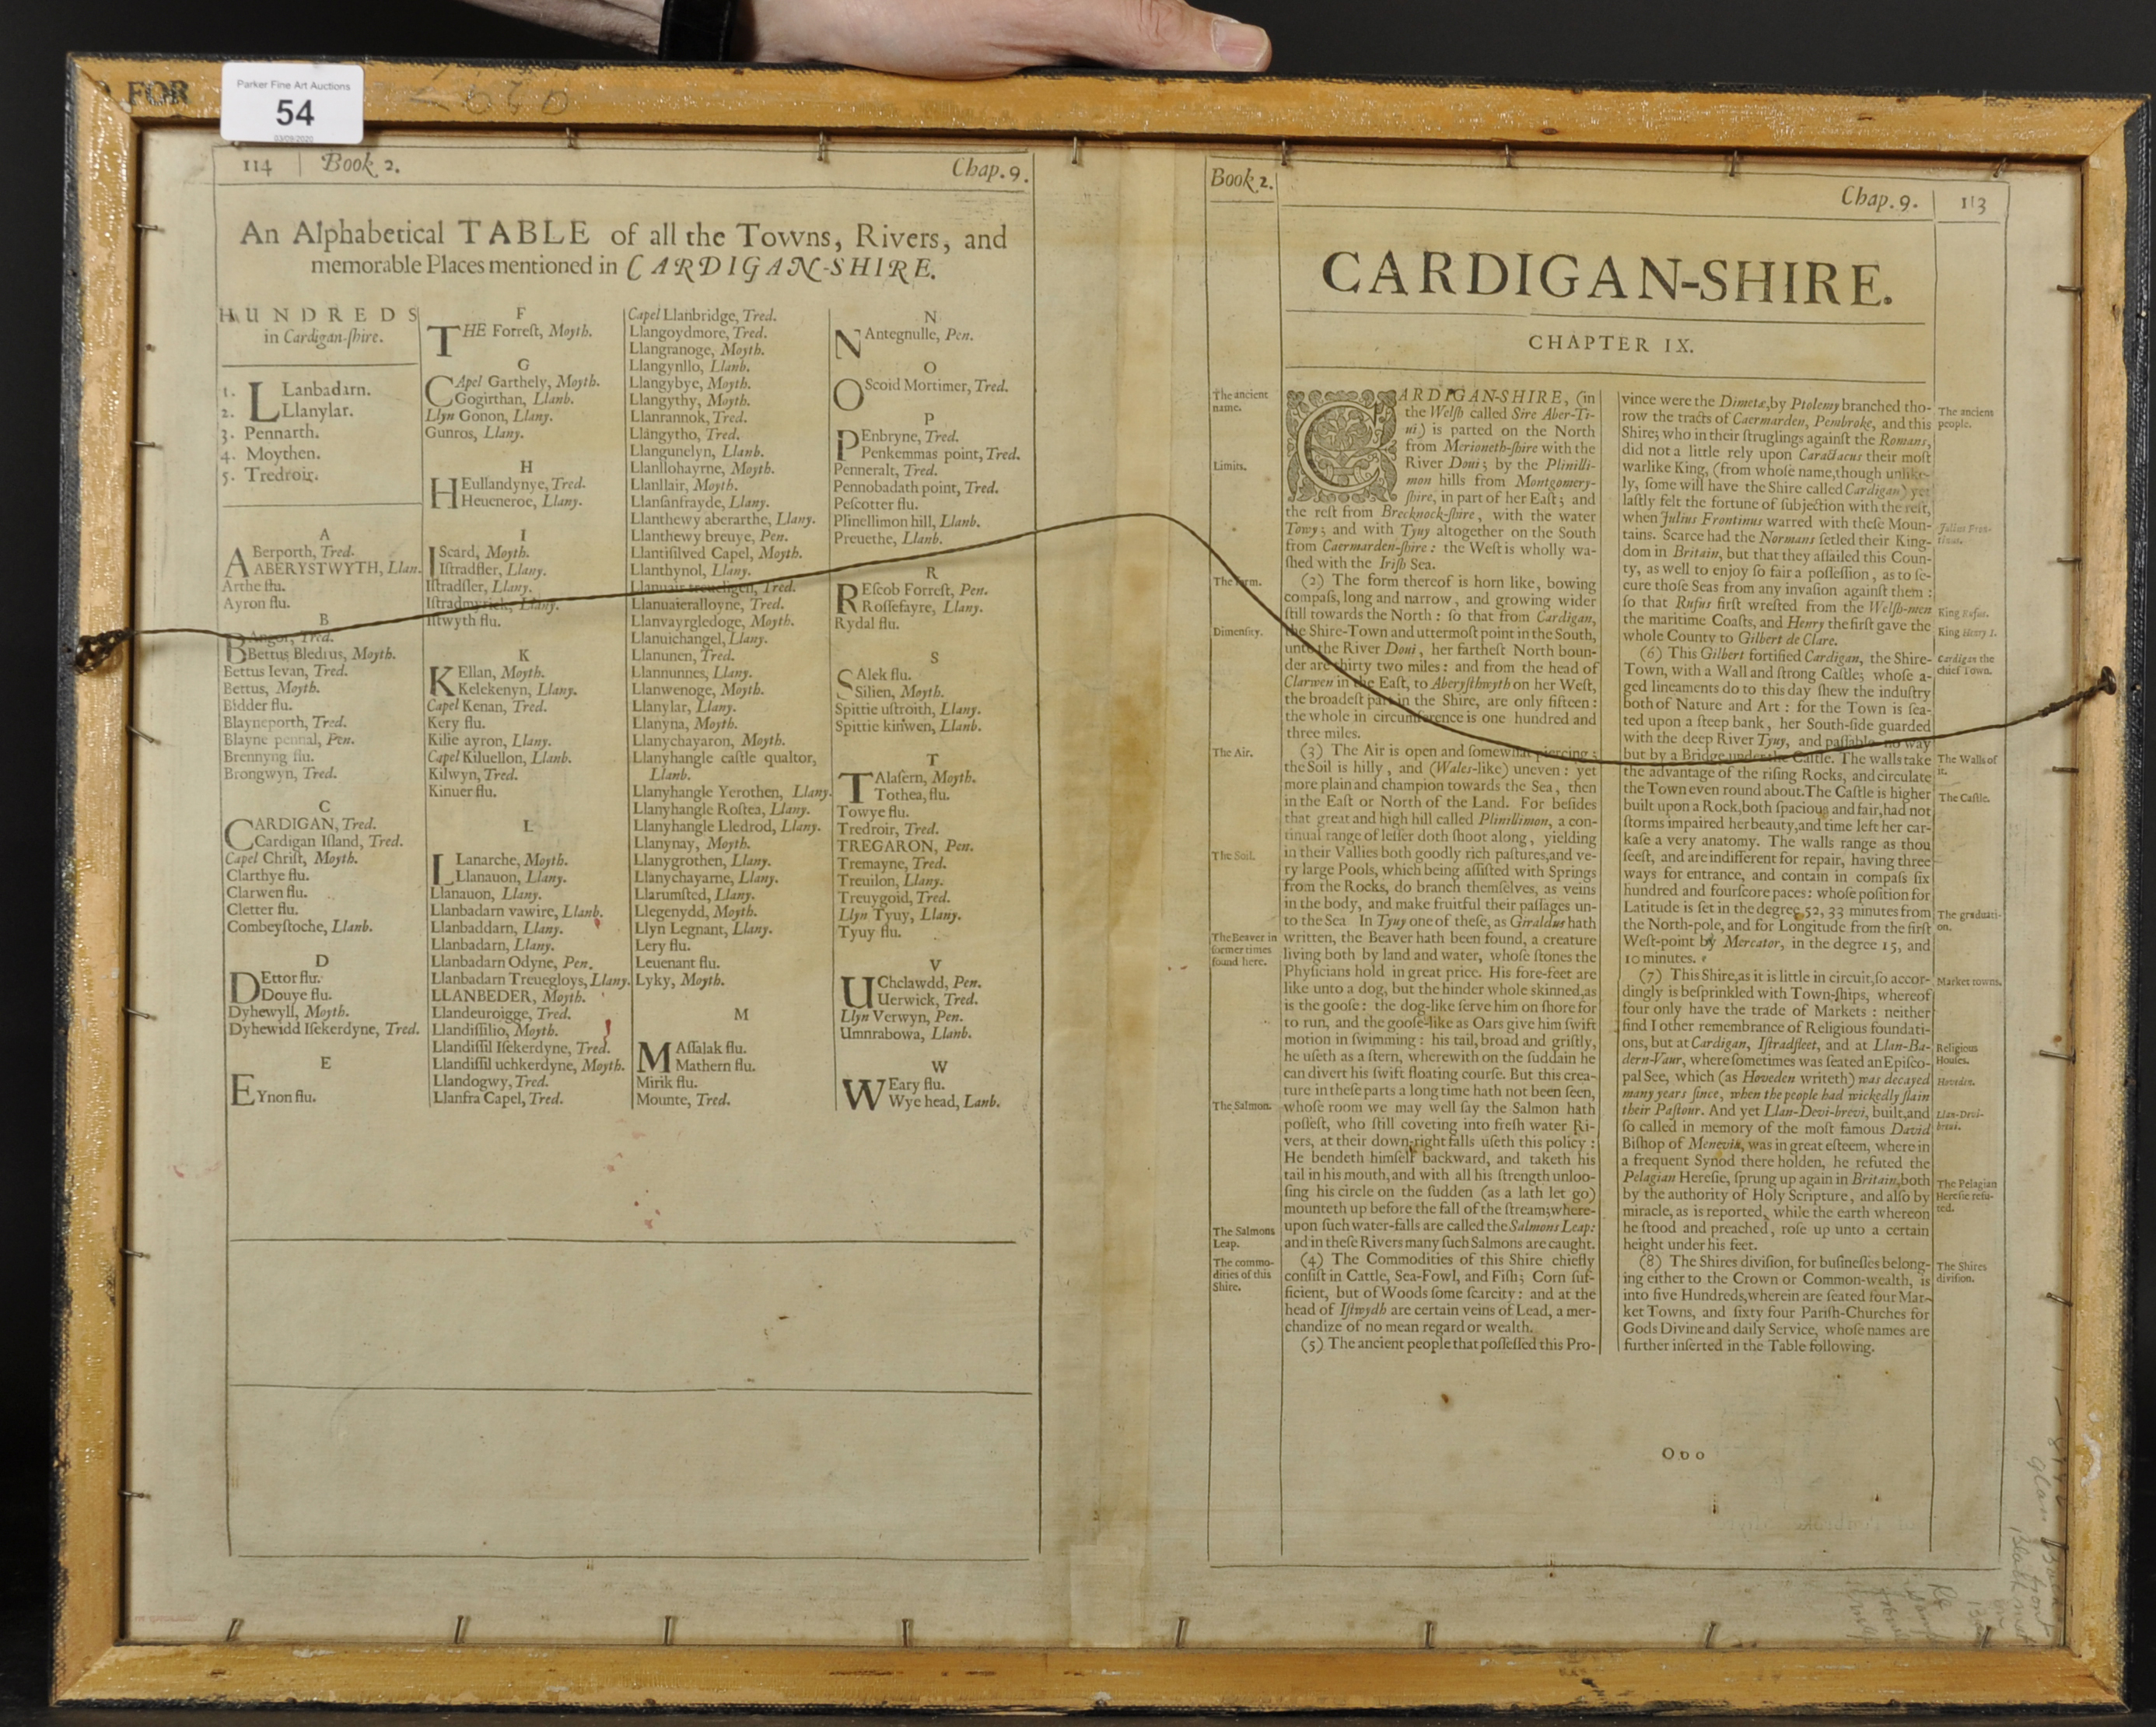 FOR
Parker Fine Art Auctions
54
03/09/2020
114 | Book 2. Chap. 9.
An Alphabetical TABLE of all the Towns, Rivers, and
memorable Places mentioned in CARDIGAN-SHIRE.
HUNDREDS
in Cardigan-ſhire.
1. LLanbadarn.
2. Llanylar.
3. Pennarth.
4. Moythen.
5. Tredroir.
A
ABerporth, Tred.
ABERYSTWYTH, Llan.
Arthe flu.
Ayron flu.
B
BAngor, Tred.
Bettus Bledrus, Moyth.
Bettus Ievan, Tred.
Bettus, Moyth.
Bidder flu.
Blayneporth, Tred.
Blayne pennal, Pen.
Brennyng flu.
Brongwyn, Tred.
C
CARDIGAN, Tred.
Cardigan Iſland, Tred.
Capel Chriſt, Moyth.
Clarthye flu.
Clarwen flu.
Cletter flu.
Combeyſtoche, Llanb.
D
DEttor flu.
Douye flu.
Dyhewyll, Moyth.
Dyhewidd Iſekerdyne, Tred.
E
EYnon flu.
F
THE Forreſt, Moyth.
G
CApel Garthely, Moyth.
Gogirthan, Llanb.
Llyn Gonon, Llany.
Gunros, Llany.
H
HEullandynye, Tred.
Heueneroe, Llany.
I
IScard, Moyth.
Iſtradfler, Llany.
Iſtradſler, Llany.
Iſtradmyrick, Llany.
Iſtwyth flu.
K
KEllan, Moyth.
Kelekenyn, Llany.
Capel Kenan, Tred.
Kery flu.
Kilie ayron, Llany.
Capel Kiluellon, Llanb.
Kilwyn, Tred.
Kinuer flu.
L
LLanarche, Moyth.
Llanauon, Llany.
Llanauon, Llany.
Llanbadarn vawire, Llanb.
Llanbaddarn, Llany.
Llanbadarn, Llany.
Llanbadarn Odyne, Pen.
Llanbadarn Treuegloys, Llany.
LLANBEDER, Moyth.
Llandeuroigge, Tred.
Llandiſſilio, Moyth.
Llandiſſil Iſekerdyne, Tred.
Llandiſſil uchkerdyne, Moyth.
Llandogwy, Tred.
Llanfra Capel, Tred.
Capel Llanbridge, Tred.
Llangoydmore, Tred.
Llangranoge, Moyth.
Llangynllo, Llanb.
Llangybye, Moyth.
Llangythy, Moyth.
Llanrannok, Tred.
Llangytho, Tred.
Llangunelyn, Llanb.
Llanllohayrne, Moyth.
Llanllair, Moyth.
Llanſanfrayde, Llany.
Llanthewy aberarthe, Llany.
Llanthewy breuye, Pen.
Llantiſilved Capel, Moyth.
Llanthynol, Llany.
Llanuair treueligen, Tred.
Llanuaieralloyne, Tred.
Llanvayrgledoge, Moyth.
Llanuichangel, Llany.
Llanunen, Tred.
Llannunnes, Llany.
Llanwenoge, Moyth.
Llanylar, Llany.
Llanyna, Moyth.
Llanychayaron, Moyth.
Llanyhangle caſtle qualtor,
Llanb.
Llanyhangle Yerothen, Llany.
Llanyhangle Roſtea, Llany.
Llanyhangle Lledrod, Llany.
Llanynay, Moyth.
Llanygrothen, Llany.
Llanychayarne, Llany.
Llarumſted, Llany.
Llegenydd, Moyth.
Llyn Legnant, Llany.
Lery flu.
Leuenant flu.
Lyky, Moyth.
M
MAſſalak flu.
Mathern flu.
Mirik flu.
Mounte, Tred.
N
NAntegnulle, Pen.
O
OScoid Mortimer, Tred.
P
PEnbryne, Tred.
Penkemmas point, Tred.
Penneralt, Tred.
Pennobadath point, Tred.
Peſcotter flu.
Plinellimon hill, Llanb.
Preuethe, Llanb.
R
REſcob Forreſt, Pen.
Roſſefayre, Llany.
Rydal flu.
S
SAlek flu.
Silien, Moyth.
Spittie uſtroith, Llany.
Spittie kinwen, Llanb.
T
TAlaſern, Moyth.
Tothea, flu.
Towye flu.
Tredroir, Tred.
TREGARON, Pen.
Tremayne, Tred.
Treuilon, Llany.
Treuygoid, Tred.
Llyn Tyuy, Llany.
Tyuy flu.
V
UChclawdd, Pen.
Uerwick, Tred.
Llyn Verwyn, Pen.
Umnrabowa, Llanb.
W
WEary flu.
Wye head, Lanb.
Book 2. Chap. 9. | 113
CARDIGAN-SHIRE.
CHAPTER IX.
The ancient
name.
Limits.
The form.
Dimenſity.
The Air.
The Soil.
The Beaver in
former times
found here.
The Salmon.
The Salmons
Leap.
The commo-
dities of this
Shire.
CARDIGAN-SHIRE, (in
the Welſh called Sire Aber-Ti-
ui) is parted on the North
from Merioneth-ſhire with the
River Doui; by the Plinilli-
mon hills from Montgomery-
ſhire, in part of her Eaſt; and
the reſt from Brecknock-ſhire, with the water
Towy; and with Tyuy altogether on the South
from Caermarden-ſhire: the Weſt is wholly wa-
ſhed with the Iriſh Sea.
(2) The form thereof is horn like, bowing
compaſs, long and narrow, and growing wider
ſtill towards the North: ſo that from Cardigan,
the Shire-Town and uttermoſt point in the South,
unto the River Doui, her fartheſt North boun-
der are thirty two miles: and from the head of
Clarwen in the Eaſt, to Aberyſthwyth on her Weſt,
the broadeſt part in the Shire, are only fifteen:
the whole in circumference is one hundred and
three miles.
(3) The Air is open and ſomewhat piercing;
the Soil is hilly, and (Wales-like) uneven: yet
more plain and champion towards the Sea, then
in the Eaſt or North of the Land. For beſides
that great and high hill called Plinillimon, a con-
tinual range of leſſer doth ſhoot along, yielding
in their Vallies both goodly rich paſtures, and ve-
ry large Pools, which being aſſiſted with Springs
from the Rocks, do branch themſelves, as veins
in the body, and make fruitful their paſſages un-
to the Sea. In Tyuy one of theſe, as Giraldus hath
written, the Beaver hath been found, a creature
living both by land and water, whoſe ſtones the
Phyſicians hold in great price. His fore-feet are
like unto a dog, but the hinder whole skinned, as
is the gooſe: the dog-like ſerve him on ſhore for
to run, and the gooſe-like as Oars give him ſwift
motion in ſwimming: his tail, broad and griſtly,
he uſeth as a ſtern, wherewith on the ſuddain he
can divert his ſwift floating courſe. But this crea-
ture in theſe parts a long time hath not been ſeen,
whoſe room we may well ſay the Salmon hath
poſſeſt, who ſtill coveting into freſh water Ri-
vers, at their down-right falls uſeth this policy:
He bendeth himſelf backward, and taketh his
tail in his mouth, and with all his ſtrength unloo-
ſing his circle on the ſudden (as a lath let go)
mounteth up before the fall of the ſtream; where-
upon ſuch water-falls are called the Salmons Leap:
and in theſe Rivers many ſuch Salmons are caught.
(4) The Commodities of this Shire chiefly
conſiſt in Cattle, Sea-Fowl, and Fiſh; Corn ſuf-
ficient, but of Woods ſome ſcarcity: and at the
head of Iſtwydh are certain veins of Lead, a mer-
chandize of no mean regard or wealth.
(5) The ancient people that poſſeſſed this Pro-
vince were the Dimetæ, by Ptolemy branched tho-
row the tracts of Caermarden, Pembroke, and this
Shire; who in their ſtruglings againſt the Romans,
did not a little rely upon Caractacus their moſt
warlike King, (from whoſe name, though unlike-
ly, ſome will have the Shire called Cardigan) yet
laſtly felt the fortune of ſubjection with the reſt,
when Julius Frontinus warred with theſe Moun-
tains. Scarce had the Normans ſetled their King-
dom in Britain, but that they aſſailed this Coun-
ty, as well to enjoy ſo fair a poſſeſſion, as to ſe-
cure thoſe Seas from any invaſion againſt them:
ſo that Rufus firſt wreſted from the Welſh-men
the maritime Coaſts, and Henry the firſt gave the
whole County to Gilbert de Clare.
(6) This Gilbert fortified Cardigan, the Shire-
Town, with a Wall and ſtrong Caſtle; whoſe a-
ged lineaments do to this day ſhew the induſtry
both of Nature and Art: for the Town is ſea-
ted upon a ſteep bank, her South-ſide guarded
with the deep River Tyuy, and paſſable no way
but by a Bridge under the Caſtle. The walls take
the advantage of the riſing Rocks, and circulate
the Town even round about. The Caſtle is higher
built upon a Rock, both ſpacious and fair, had not
ſtorms impaired her beauty, and time left her car-
kaſe a very anatomy. The walls range as thou
ſeeſt, and are indifferent for repair, having three
ways for entrance, and contain in compaſs ſix
hundred and fourſcore paces: whoſe poſition for
Latitude is ſet in the degree 52, 33 minutes from
the North-pole, and for Longitude from the firſt
Weſt-point by Mercator, in the degree 15, and
10 minutes.
(7) This Shire, as it is little in circuit, ſo accor-
dingly is beſprinkled with Town-ſhips, whereof
four only have the trade of Markets: neither
find I other remembrance of Religious foundati-
ons, but at Cardigan, Iſtradfleet, and at Llan-Ba-
dern-Vaur, where ſometimes was ſeated an Epiſco-
pal See, which (as Hoveden writeth) was decayed
many years ſince, when the people had wickedly ſlain
their Paſtour. And yet Llan-Devi-brevi, built, and
ſo called in memory of the moſt famous David
Biſhop of Menevia, was in great eſteem, where in
a frequent Synod there holden, he refuted the
Pelagian Hereſie, ſprung up again in Britain, both
by the authority of Holy Scripture, and alſo by
miracle, as is reported, while the earth whereon
he ſtood and preached, roſe up unto a certain
height under his feet.
(8) The Shires diviſion, for buſineſſes belong-
ing either to the Crown or Common-wealth, is
into five Hundreds, wherein are ſeated four Mar-
ket Towns, and ſixty four Pariſh-Churches for
Gods Divine and daily Service, whoſe names are
further inſerted in the Table following.
The ancient
people.
Julius Fron-
tinus.
King Rufus.
King Henry 1.
Cardigan the
chief Town.
The Walls of
it.
The Caſtle.
The graduati-
on.
Market towns.
Religious
Houſes.
Hoveden.
Llan-Devi-
brevi.
The Pelagian
Hereſie refu-
ted.
The Shires
diviſion.
Ooo